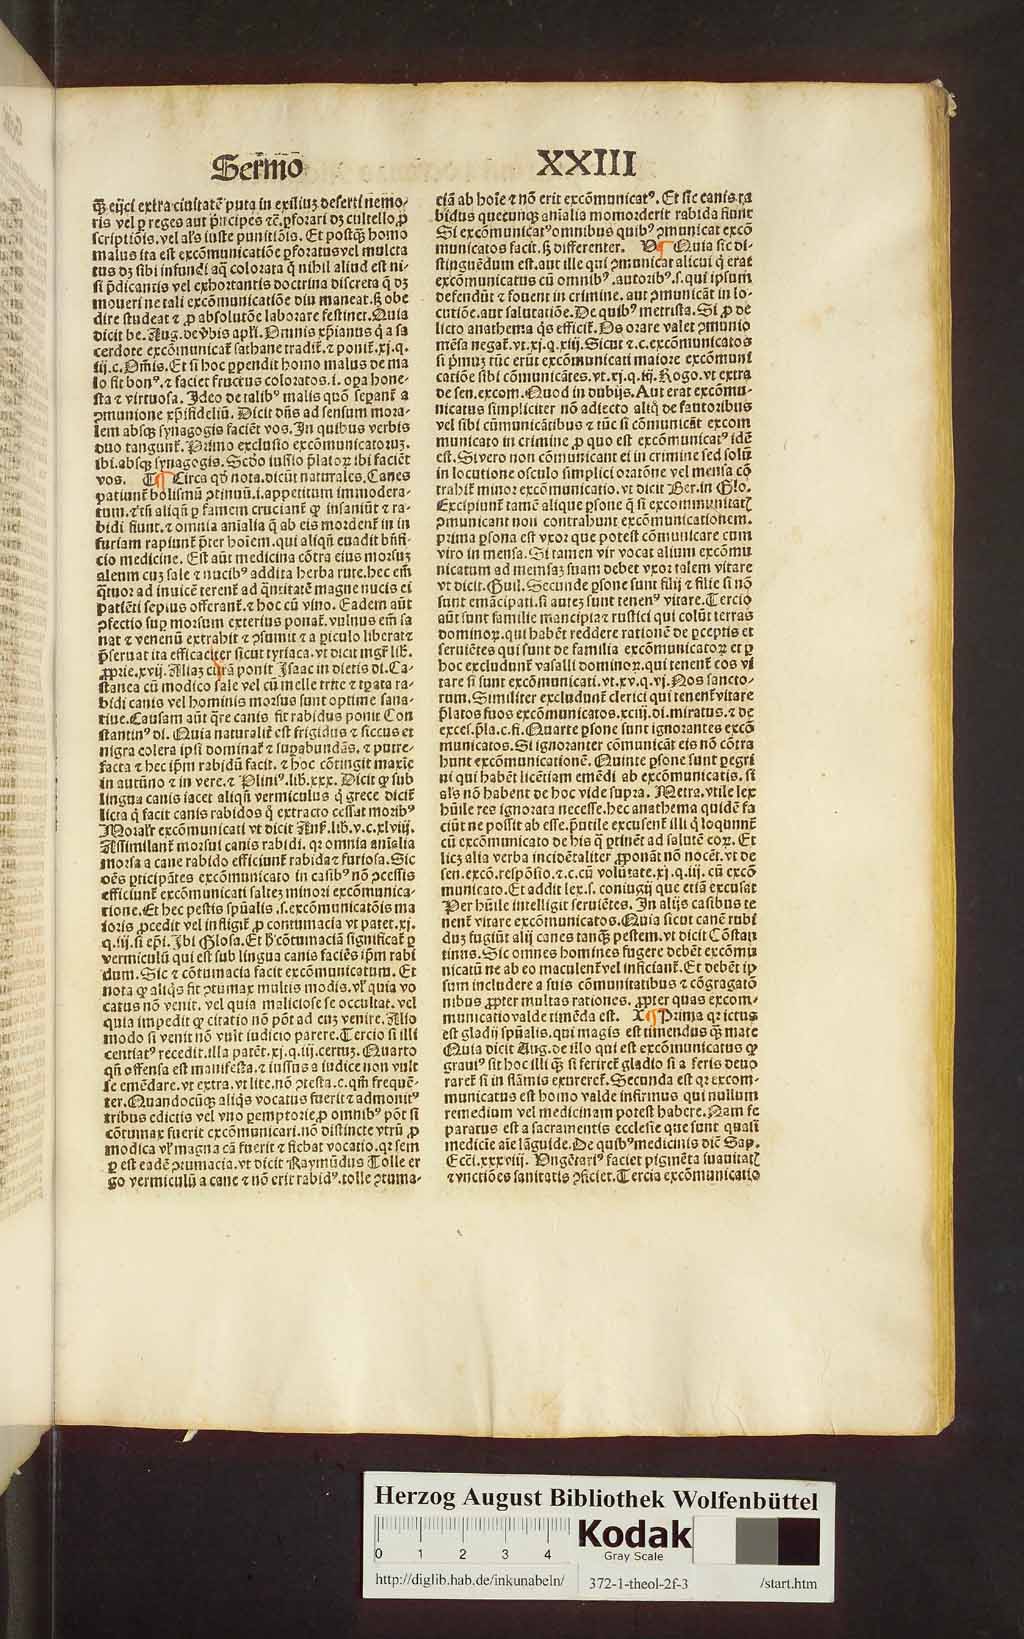 Sermō XXIII
q̄ȝ eijci extra ciuitatē puta in exiliuȝ deserti nemo-
ris vel ꝑ reges aut pͥncipes ⁊c̄. ꝑforari dȝ cultello. ꝓ
scriptiōis. vel al's iuste punitiōis. Et postqȝ homo
malus ita est excōmunicatiōe ꝑforatus vel mulcta
tus dȝ sibi infundi aq̄ colorata q̄ nihil aliud est ni-
si p̄dicantis vel exhortantis doctrina discreta q̄ dȝ
moueri ne tali excōmunicatiōe diu maneat. sȝ obe
dire studeat ⁊ ꝓ absolutōe laborare festinet. Quia
dicit be. Aug. de v̓bis apl'i. Omnis xp̄ianus q̄ a sa
cerdote excōmunicat᷑ sathane tradit᷑. ⁊ ponit᷑. xj. q.
iij. c. Oīs. Et si hoc ꝑpendit homo malus de ma
lo fit bonꝰ. ⁊ faciet fructus coloratos. i. oꝑa hone-
sta ⁊ virtuosa. Ideo de talibꝰ malis quō seꝑant᷑ a
ꝯmunione xp̄ifideliū. Dicit dn̄s ad sensum mora-
lem absqȝ synagogis faciēt vos. In quibus verbis
duo tangunt᷑. Primo exclusio excōmunicatoruȝ.
ibi. absqȝ synagogis. Scd̄o iussio p̄latoꝝ ibi faciēt
vos. T ¶ Circa qd̄ nota. dicūt naturales. Canes
patiunt᷑ bolismū ꝯtinuū. i. appetitum immodera-
tum. ⁊ tn̄ aliqn̄ ꝑ famem cruciant᷑ ꝙ insaniūt ⁊ ra-
bidi fiunt. ⁊ omnia aīalia q̄ ab eis mordent᷑ in in
furiam rapiunt᷑ p̄ter hoīem. qui aliqn̄ euadit bn̄fi-
cio medicine. Est aūt medicina cōtra eius morsuȝ
aleum cuȝ sale ⁊ nucibꝰ addita herba rute. hec em̄
qͣtuor ad inuicē terent᷑ ad qͣntitatē magne nucis ei
patiēti sepius offerant᷑. ⁊ hoc cū vino. Eadem aūt
ꝯfectio suꝑ morsum exterius ponat᷑. vulnus em̄ sa
nat ⁊ venenū extrahit ⁊ ꝯsumit ⁊ a ꝑiculo liberat ⁊
p̄seruat ita efficaciter sicut tyriaca. vt dicit ingr̄ lib̄.
ꝓprie. xvij. Aliaȝ curā ponit Isaac in dietis di. Ca-
stanea cū modico sale vel cū melle trite ⁊ tꝑata ra-
bidi canis vel hominis morsus sunt optime sana-
tiue. Causam aūt qͣre canis fit rabidus ponit Con
stantinꝰ di. Quia naturalit᷑ est frigidus ⁊ siccus et
nigra colera ipsi dominat᷑ ⁊ suꝑabundās. ⁊ putre-
facta ⁊ hec ip̄m rabidū facit. ⁊ hoc cōtingit maxīe
in autūno ⁊ in vere. ⁊ Pliniꝰ. lib. xxx. Dicit ꝙ sub
lingua canis iacet aliqn̄ vermiculus q̄ grece dicit᷑
licta q̄ facit canis rabidos q̄ extracto cessat morbꝰ
Moralr̄ excōmunicati vt dicit Ans̄. lib. v. c. xlviij.
Assimilant᷑ morsui canis rabidi. qr omnia aīalia
morsa a cane rabido efficiunt᷑ rabida ⁊ furiosa. Sic
oēs ꝑticipātes excōmunicato in casibꝰ nō ꝯcessis
efficiunt᷑ excōmunicati salteȝ minori excōmunica-
tione. Et hec pestis spūalis. s. excōmunicatōis ma
ioris ꝓcedit vel infligit᷑ ꝓ contumacia vt patet. xj.
q. iij. si ep̄i. Ibi Glosa. Et h̓ cōtumaciā significat᷑ ꝑ
vermiculū qui est sub lingua canis faciēs ip̄m rabi
dum. Sic ⁊ cōtumacia facit excōmunicatum. Et
nota ꝙ aliqͥs fit ꝯtumax multis modis. vl' quia vo
catus nō venit. vel quia maliciose se occultat. vel
quia impedit ꝙ citatio nō pōt ad euȝ venire. Alio
modo si venit nō vult iudicio parere. Tercio si illi
centiatꝰ recedit. illa patēt. xj. q. iij. certuȝ. Quarto
qn̄ offensa est manifesta. ⁊ iussus a iudice non vult
se emēdare. vt extra. vt lite. nō ꝯtesta. c. qm̄ frequē-
ter. Quandocūqȝ aliqͥs vocatus fuerit ⁊ admonitꝰ
tribus edictis vel vno ꝑemptorie. ꝓ omnibꝰ pōt si
cōtumax fuerit excōmunicari. nō distincte vtrū ꝓ
modica vl' magna cā fuerit ⁊ fiebat vocatio. qr sem
ꝑ est eadē ꝯtumacia. vt dicit Raymūdus Tolle er
go vermiculū a cane ⁊ nō erit rabidꝰ. tolle ꝯtuma-
ciā ab hoīe ⁊ nō erit excōmunicatꝰ. Et sic canis ra
bidus quecunqȝ aīalia momorderit rabida fiunt
Si excōmunicatꝰ omnibus quibꝰ ꝯmunicat excō
municatos facit. sȝ differenter. V ¶ Quia sic di-
stinguēdum est. aut ille qui ꝯmunicat alicui q̄ erat
excōmunicatus cū omnibꝰ. autoribꝰ. s. qui ipsum
defendūt ⁊ fouent in crimine. aut ꝯmunicāt in lo-
cutiōe. aut salutatiōe. De quibꝰ metrista. Si ꝓ de
licto anathema qͥs efficit᷑. Os orare valet ꝯmunio
mēsa negat᷑. vt. xj. q. iij. Sicut ⁊. c. excōmunicatos
si pͥmuȝ tūc erūt excōmunicati maiore excōmuni
catiōe sibi cōmunicātes. vt. xj. q. iij. Rogo. vt extra
de sen. excom. Quod in dubijs. Aut erat excōmu-
nicatus simpliciter nō adiecto aliqͦ de fautoribus
vel sibi cūmunicātibus ⁊ tūc si cōmunicāt excom
municato in crimine ꝓ quo est excōmunicatꝰ idē
est. Si vero non cōmunicant ei in crimine sed solū
in locutione osculo simplici oratōne vel mensa cō
trahit᷑ minor excōmunicatio. vt dicit Ber. in Glo.
Excipiunt᷑ tamē alique ꝑsone q̄ si excommunitatꝫ
ꝯmunicant non contrahunt excōmunicationem.
prima ꝑsona est vxor que potest cōmunicare cum
viro in mensa. Si tamen vir vocat alium excōmu
nicatum ad mensaȝ suam debet vxor talem vitare
vt dicit. Guil. Secunde ꝑsone sunt filij ⁊ filie si nō
sunt emācipati. si auteȝ sunt tenenꝰ vitare. Tercio
aūt sunt familie mancipia ⁊ rustici qui colūt terras
dominoꝝ. qui habēt reddere rationē de ꝑceptis et
seruiētes qui sunt de familia excōmunicatoꝝ et ꝑ
hoc excludunt᷑ vasalli dominoꝝ. qui tenent᷑ eos vi
tare si sunt excōmunicati. vt. xv. q. vj. Nos sancto-
rum. Similiter excludunt᷑ clerici qui tenent᷑ vitare
p̄latos suos excōmunicatos. xciij. di. miratus. ⁊ de
excel. p̄la. c. fi. Quarte ꝑsone sunt ignorantes excō
municatos. Si ignoranter cōmunicāt eis nō cōtra
hunt excōmunicationē. Quinte ꝑsone sunt ꝑegri
ni qui habēt licētiam emēdi ab excōmunicatis. si
al's nō habent de hoc vide supra. Metra. vtile lex
hūile res ignorata necesse. hec anathema quidē fa
ciūt ne possit ab esse. p̄utile excusent᷑ illi q̄ loqūnt᷑
cū excōmunicato de his q̄ ꝑtinēt ad salutē eoꝝ. Et
licȝ alia verba incidētaliter ꝓponāt nō nocēt. vt de
sen. excō. respōsio. ⁊. c. cū volūtate. xj. q. iij. cū excō
municato. Et addit lex. s. coniugij que etiā excusat
Per hūile intelligit seruiētes. In alijs casibus te
nent᷑ vitare excōmunicatos. Quia sicut canē rabi
duȝ fugiūt alij canes tanqȝ pestem. vt dicit Cōstan
tinus. Sic omnes homines fugere debēt excōmu
nicatū ne ab eo maculent᷑ vel inficiant᷑. Et debēt ip
sum includere a suis comunitatibus ⁊ cōgragatō
nibus ꝓpter multas rationes. ꝓpter quas excom-
municatio valde timēda est. X ¶ Prima qr ictus
est gladij spūalis. qui magis est timendus qȝ mate
Quia dicit Aug. de illo qui est excōmunicatus ꝙ
grauiꝰ sit hoc illi qȝ si feriret᷑ gladio si a feris deuo
raret᷑ si in flāmis exureret᷑. Secunda est qr excom-
municatus est homo valde infirmus qui nullum
remedium vel medicinam potest habere. Nam se
paratus est a sacramentis ecclesie que sunt quasi
medicīe aīe lāguide. De quibꝰ medicinis dic̄ Sap.
Ecci. xxxviij. Vngētariꝰ faciet pigmēta suauitatꝫ
⁊ vnctiōes sanitatis ꝯficiet. Tercia excōmunicatio
Herzog August Bibliothek Wolfenbüttel
0 1 2 3 4
Kodak
Gray Scale
http://diglib.hab.de/inkunabeln/ 372-1-theol-2f-3 /start.htm